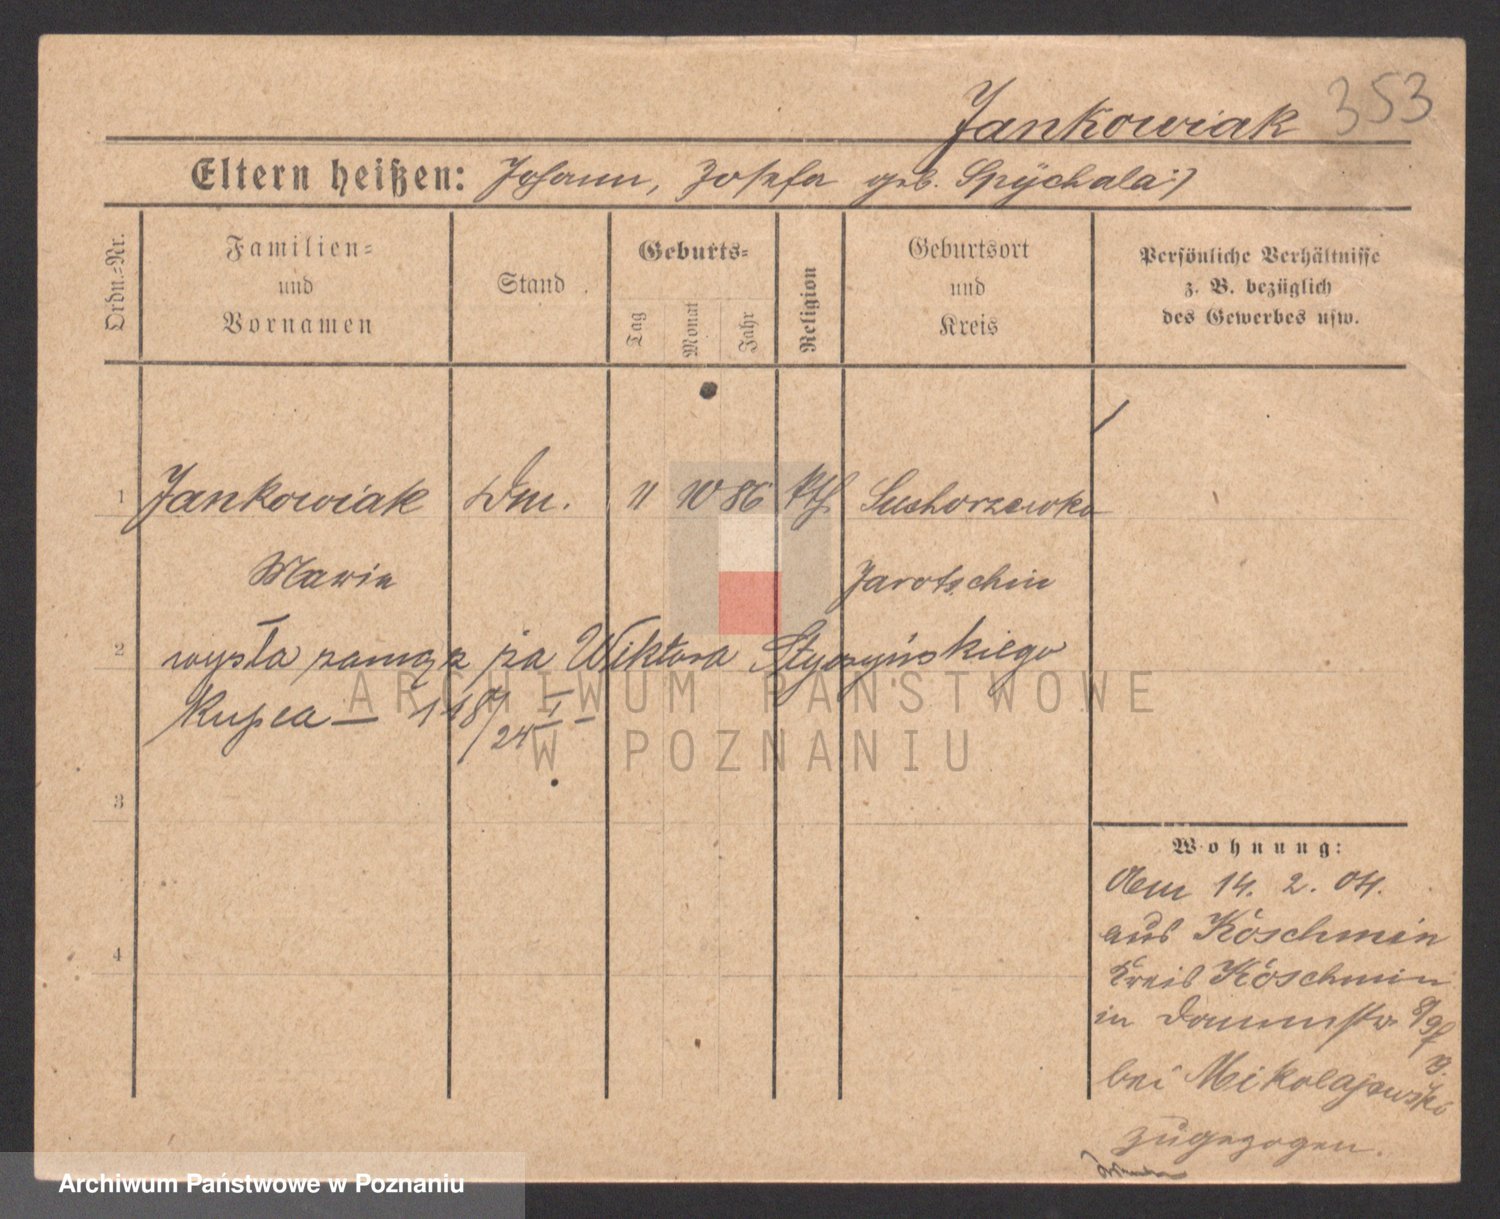 353
Jankowiak
Eltern heißen: Johann, Josefa geb. Spÿchala :)
Ordn.=Nr.
Familien=
und
Vornamen
Stand
Geburts=
Tag
Monat
Jahr
Religion
Geburtsort
und
Kreis
Persönliche Verhältnisse
z. B. bezüglich
des Gewerbes usw.
1 Jankowiak Dm. 11 10 86 kth Suchorzewko
Maria Jarotschin
2 wysła zamąż za Wiktora Styszyńskiego
Kupca —
3
4
Wohnung:
Am 14. 2. 04.
aus Koschmin
Kreis Koschmin
in Dammstr. 8/9
bei Mikolajewski
zugezogen.
ARCHIWUM PAŃSTWOWE
W POZNANIU
Archiwum Państwowe w Poznaniu